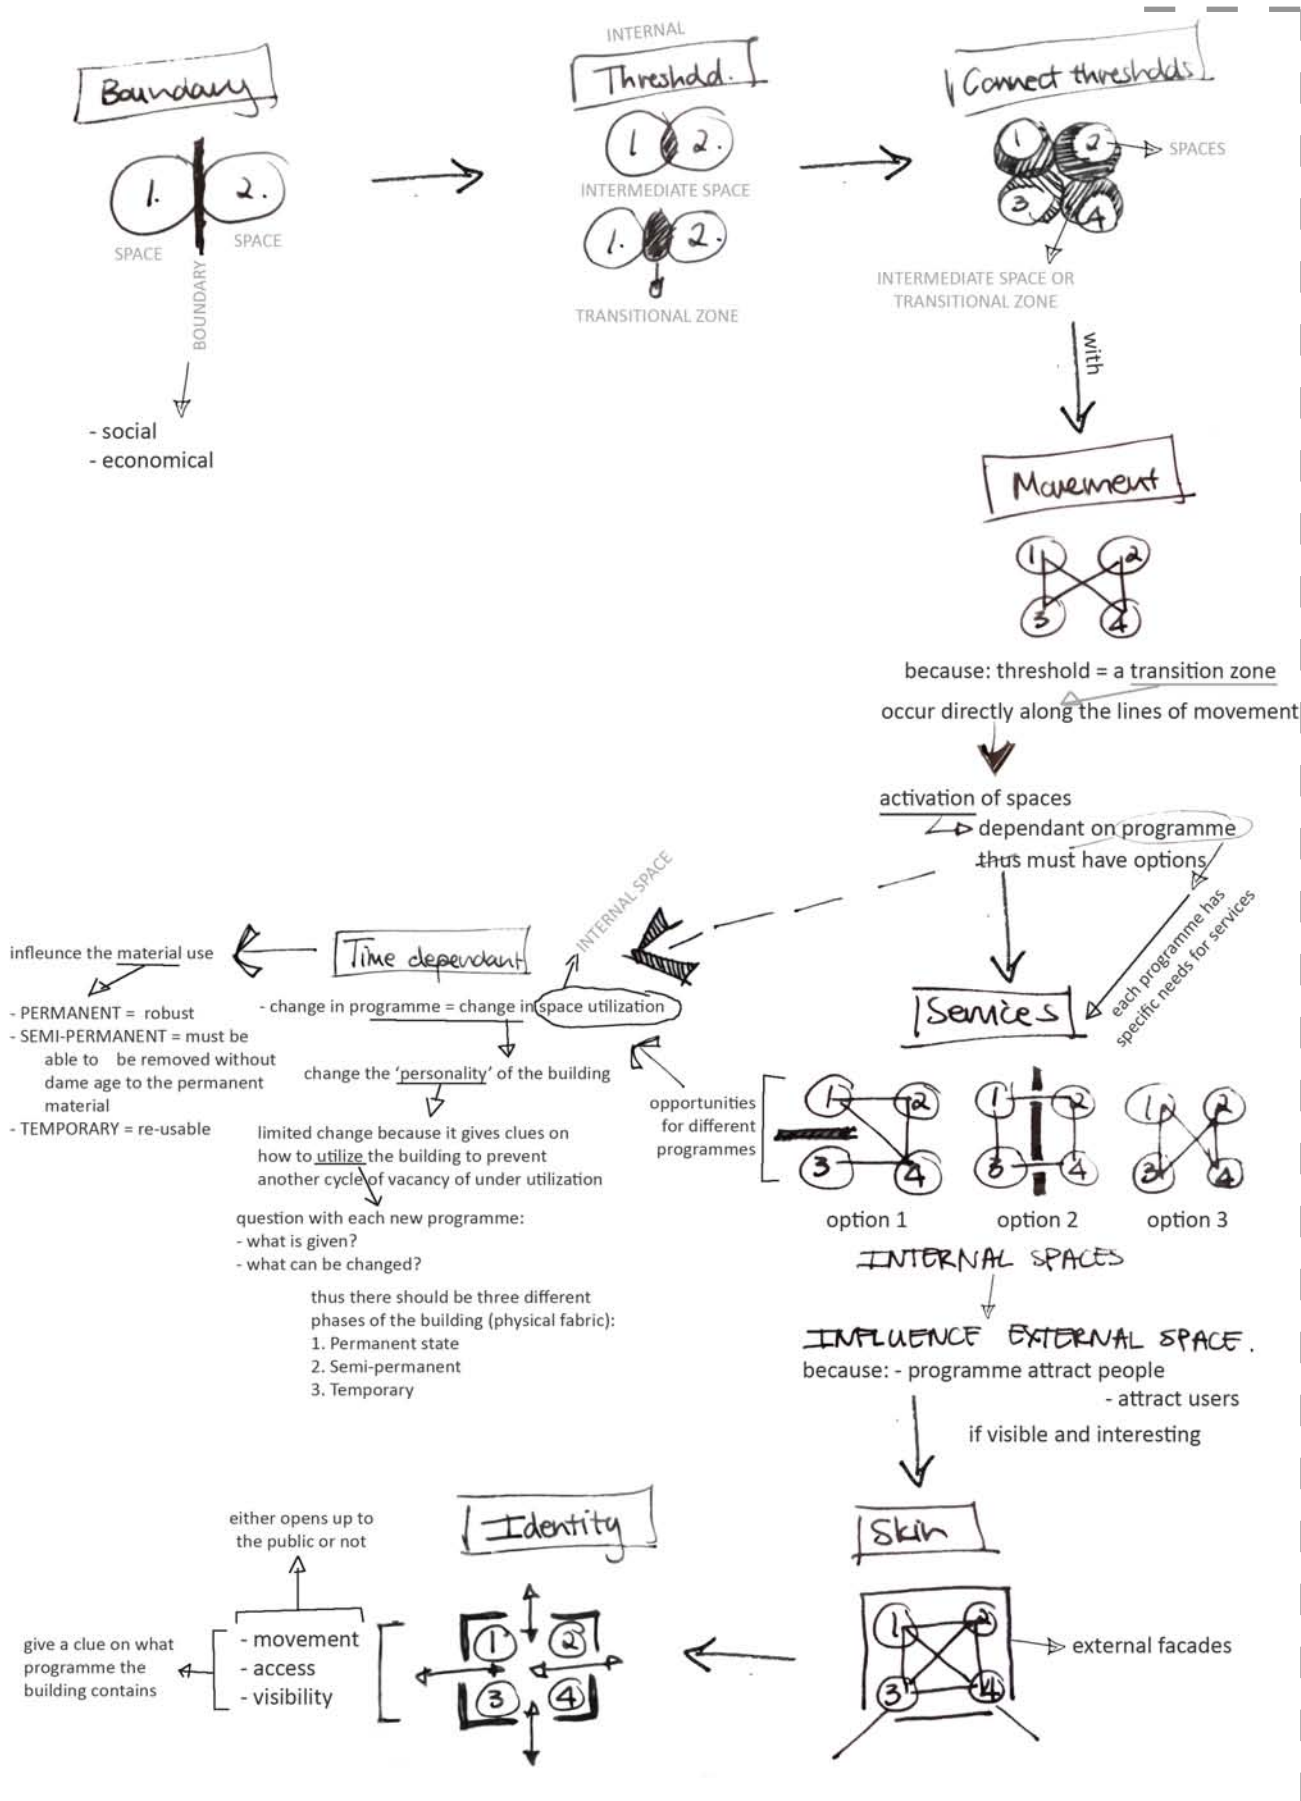 Boundary
1.
2.
SPACE
SPACE
BOUNDARY
- social
- economical
INTERNAL
Threshold.
1
2.
INTERMEDIATE SPACE
1.
2.
TRANSITIONAL ZONE
Connect thresholds
1
2
3
4
SPACES
INTERMEDIATE SPACE OR
TRANSITIONAL ZONE
with
Movement
1
2
3
4
because: threshold = a transition zone
occur directly along the lines of movement
activation of spaces
dependant on programme
thus must have options
each programme has
specific needs for services
INTERNAL SPACE
Time dependant
- change in programme = change in space utilization
infleunce the material use
- PERMANENT = robust
- SEMI-PERMANENT = must be
able to be removed without
dame age to the permanent
material
- TEMPORARY = re-usable
change the ‘personality’ of the building
limited change because it gives clues on
how to utilize the building to prevent
another cycle of vacancy of under utilization
question with each new programme:
- what is given?
- what can be changed?
thus there should be three different
phases of the building (physical fabric):
1. Permanent state
2. Semi-permanent
3. Temporary
Services
opportunities
for different
programmes
1
2
3
4
1
2
3
4
1
2
3
4
option 1
option 2
option 3
INTERNAL SPACES
INFLUENCE EXTERNAL SPACE.
because: - programme attract people
- attract users
if visible and interesting
Skin
1
2
3
4
external facades
Identity
1
2
3
4
either opens up to
the public or not
- movement
- access
- visibility
give a clue on what
programme the
building contains